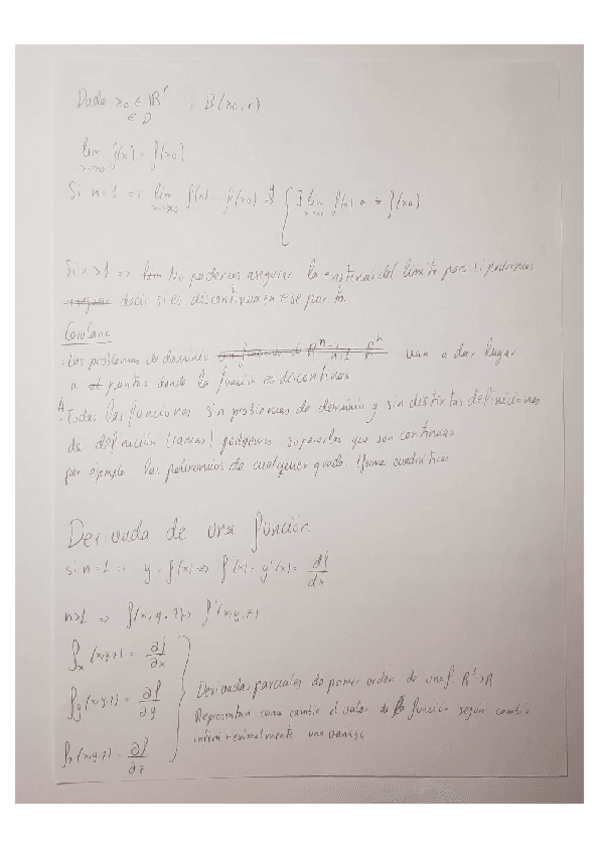 Dado x₀ ∈ ℝʳ , B(x₀, r)
∈ D
lim f(x) = f(x₀)
x→x₀
Si n=1 => lim f(x) = f(x₀) => { ∃ lim f(x) = f(x₀)
x→x₀ x→x₀
Si n>1 => No podemos asegurar la existencia del limite pero si podremos
decir si es discontinua en ese punto.
Corolario
Los problemas de dominio van a dar lugar
a puntos donde la función es discontinua
Todas las funciones sin problemas de dominio y sin distintas definiciones
de definición (ramas) podemos suponerlas que son continuas
por ejemplo los polinomios de cualquier grado. (forma cuadráticas
Derivada de una función
si n=1 => y = f(x) => f'(x) = y'(x) = df/dx
n>1 => f(x,y,z) f'(x,y,z)
fₓ(x,y,z) = ∂f/∂x
f_y(x,y,z) = ∂f/∂y
f_z(x,y,z) = ∂f/∂z
Derivadas parciales de primer orden de una f: ℝʳ→ℝ
Representan como cambia el valor de la función según cambia
infinitesimalmente una